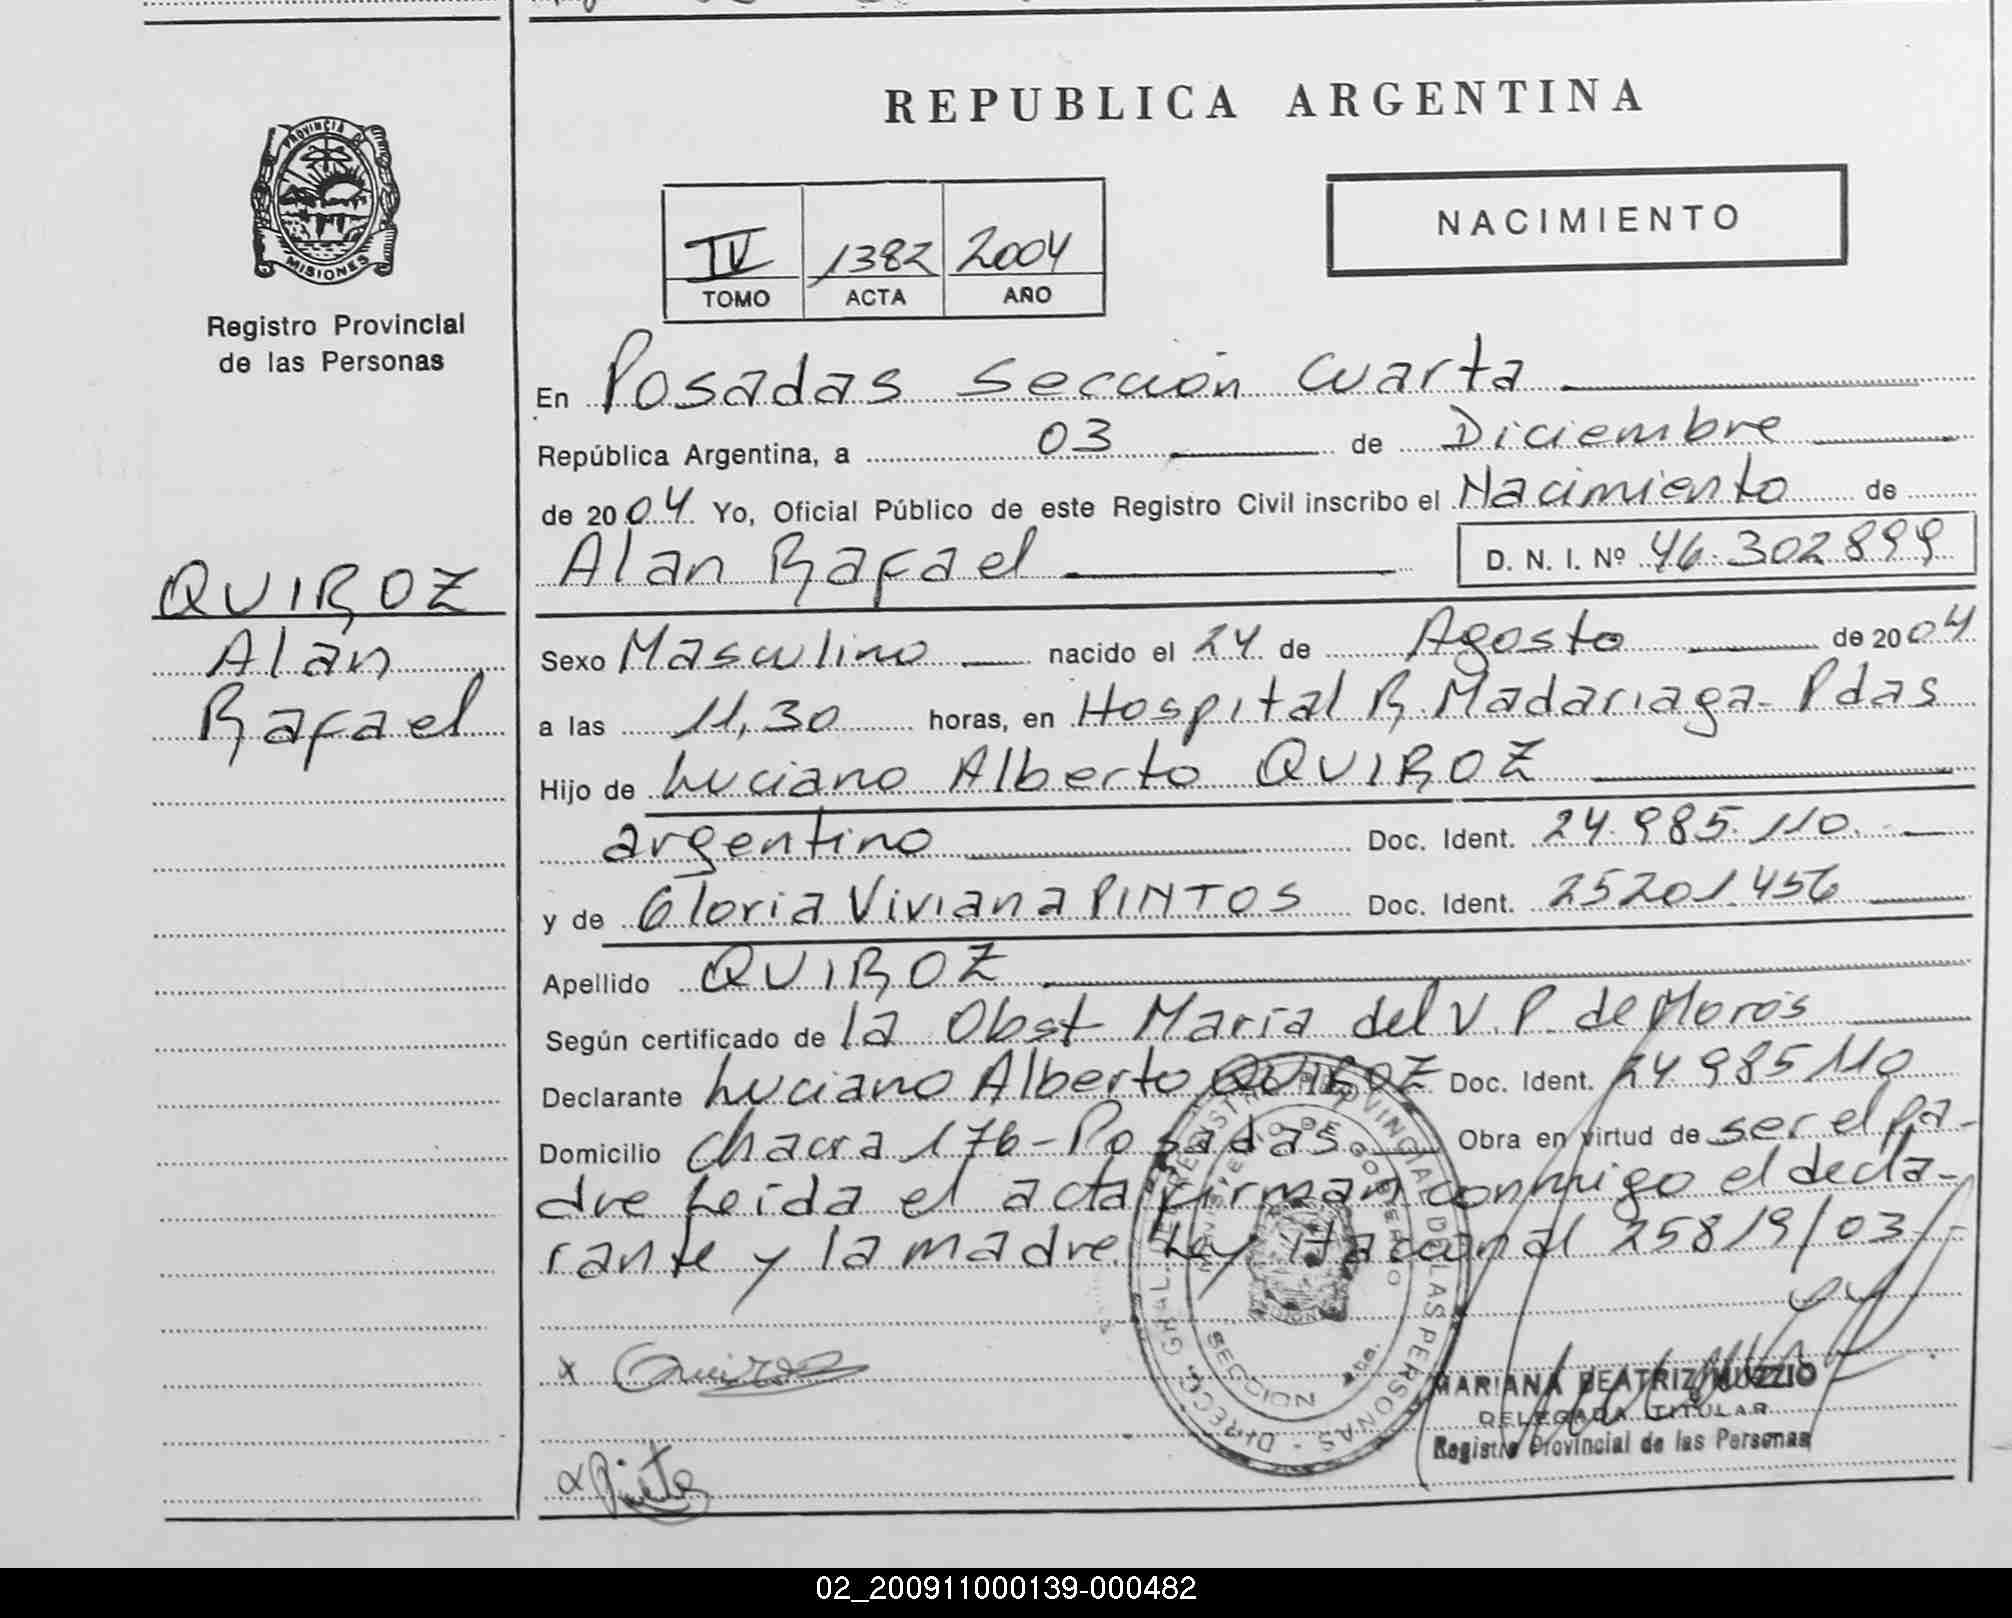 REPUBLICA ARGENTINA
PROVINCIA DE
MISIONES
Registro Provincial
de las Personas
NACIMIENTO
IV 1382 2004
TOMO ACTA AÑO
En Posadas Sección Cuarta
República Argentina, a 03 de Diciembre
de 2004 Yo, Oficial Público de este Registro Civil inscribo el Nacimiento de
Alan Rafael D. N. I. Nº 46.302899
QUIROZ
Alan
Rafael
Sexo Masculino nacido el 24 de Agosto de 2004
a las 11,30 horas, en Hospital R. Madariaga - Pdas
Hijo de Luciano Alberto QUIROZ
argentino Doc. Ident. 24.985.110.
y de Gloria Viviana PINTOS Doc. Ident. 25201.456
Apellido QUIROZ
Según certificado de la Obst María del V. P. de Morós
Declarante Luciano Alberto QUIROZ Doc. Ident. 24 985 110
Domicilio chacra 176 - Posadas Obra en virtud de ser el pa-
dre Leida el acta firman conmigo el decla-
rante y la madre. Ley Nacional 25819/03
x Quiroz
x Pintos
DIRECC. GRAL. DE REGISTRO PROVINCIAL DE LAS PERSONAS -
MINISTERIO DE GOBIERNO
SECCION 4ta.
MARIANA BEATRIZ MUZZIO
DELEGADA TITULAR
Registro Provincial de las Personas
02_200911000139-000482